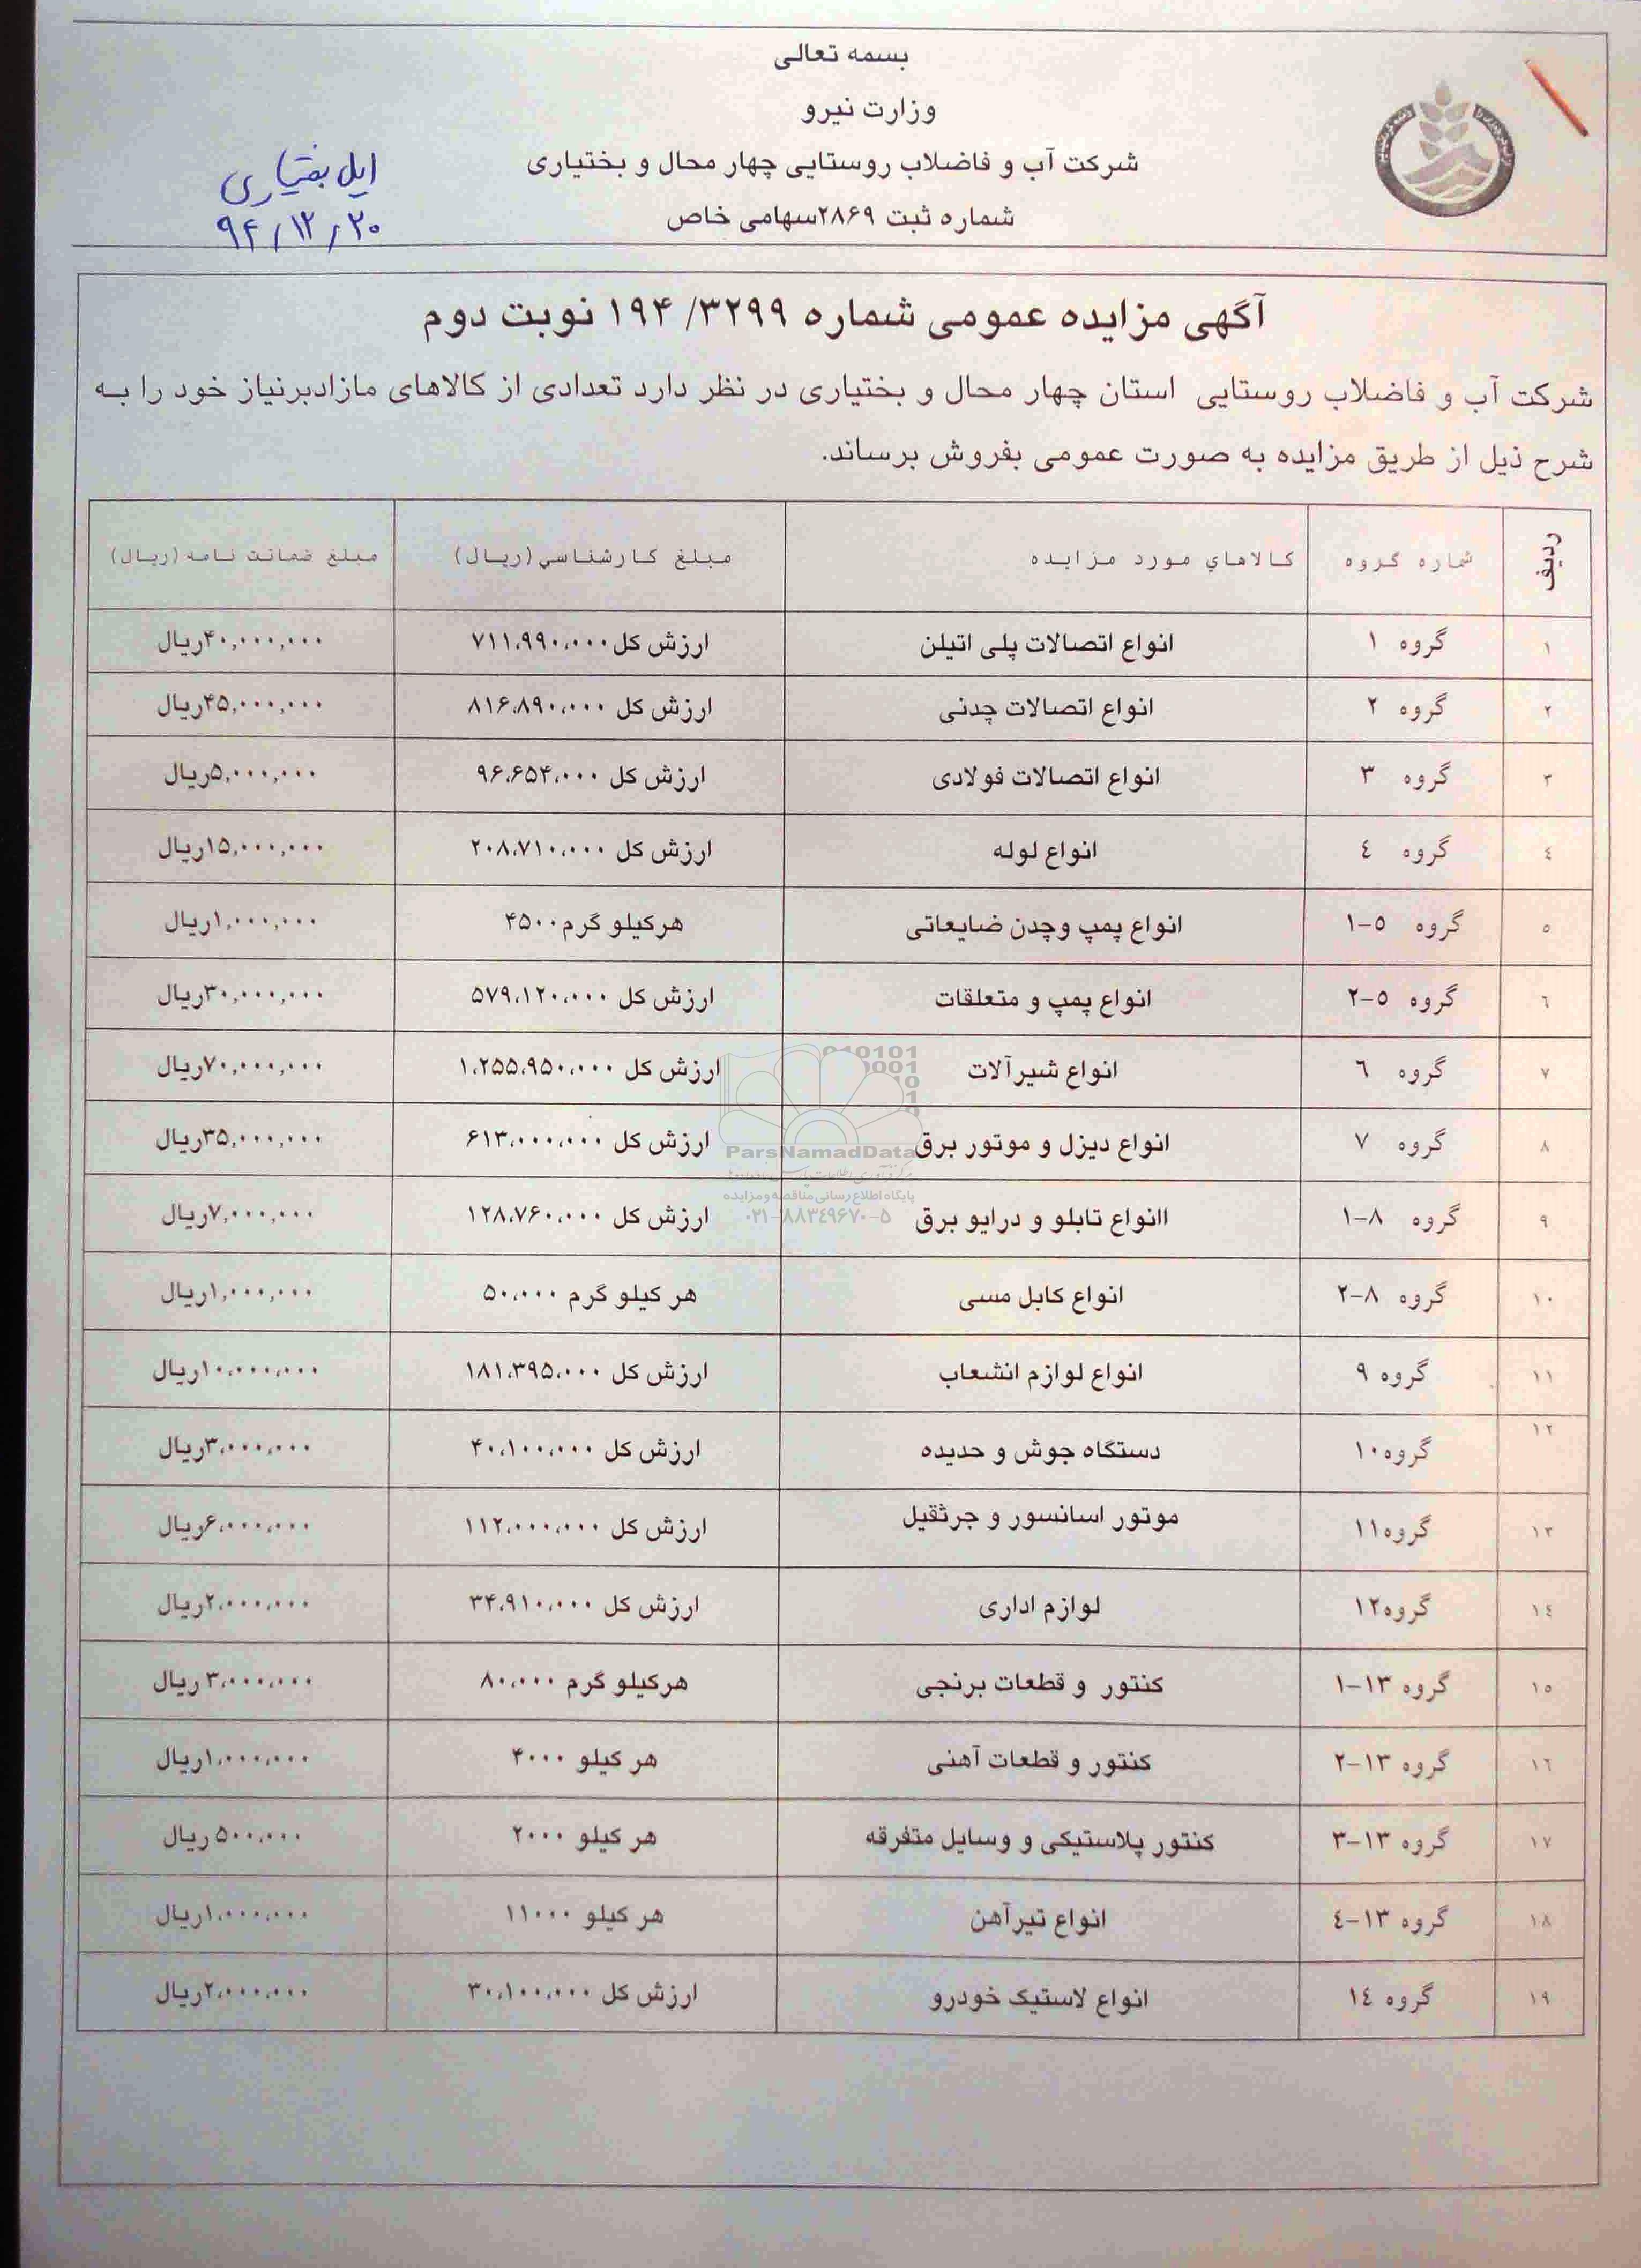 بسمه تعالی
وزارت نیرو
شرکت آب و فاضلاب روستایی چهار محال و بختیاری
شماره ثبت ۲۸۶۹سهامی خاص
ایل بختیاری
۹۴/۱۲/۲۰
آگهی مزایده عمومی شماره ۳۲۹۹/ ۱۹۴ نوبت دوم
شرکت آب و فاضلاب روستایی استان چهار محال و بختیاری در نظر دارد تعدادی از کالاهای مازادبرنیاز خود را به
شرح ذیل از طریق مزایده به صورت عمومی بفروش برساند.
ردیف شماره گروه کالاهاي مورد مزایده مبلغ کارشناسي(ریال) مبلغ ضمانت نامه(ریال)
۱ گروه ۱ انواع اتصالات پلی اتیلن ارزش کل۷۱۱،۹۹۰،۰۰۰ ۴۰,۰۰۰,۰۰۰ریال
۲ گروه ۲ انواع اتصالات چدنی ارزش کل ۸۱۶،۸۹۰،۰۰۰ ۴۵,۰۰۰,۰۰۰ریال
۳ گروه ۳ انواع اتصالات فولادی ارزش کل ۹۶،۶۵۴،۰۰۰ ۵,۰۰۰,۰۰۰ریال
٤ گروه ٤ انواع لوله ارزش کل ۲۰۸،۷۱۰،۰۰۰ ۱۵,۰۰۰,۰۰۰ریال
٥ گروه ٥-۱ انواع پمپ وچدن ضایعاتی هرکیلو گرم۴۵۰۰ ۱,۰۰۰,۰۰۰ریال
٦ گروه ٥-۲ انواع پمپ و متعلقات ارزش کل ۵۷۹،۱۲۰،۰۰۰ ۳۰,۰۰۰,۰۰۰ریال
۷ گروه ٦ انواع شیرآلات ارزش کل ۱،۲۵۵،۹۵۰،۰۰۰ ۷۰,۰۰۰,۰۰۰ریال
۸ گروه ۷ انواع دیزل و موتور برق ارزش کل ۶۱۳،۰۰۰،۰۰۰ ۳۵,۰۰۰,۰۰۰ریال
۹ گروه ۸-۱ اانواع تابلو و درایو برق ارزش کل ۱۲۸،۷۶۰،۰۰۰ ۷,۰۰۰,۰۰۰ریال
۱۰ گروه ۸-۲ انواع کابل مسی هر کیلو گرم ۵۰،۰۰۰ ۱,۰۰۰,۰۰۰ریال
۱۱ گروه ۹ انواع لوازم انشعاب ارزش کل ۱۸۱،۳۹۵،۰۰۰ ۱۰،۰۰۰،۰۰۰ریال
۱۲ گروه۱۰ دستگاه جوش و حدیده ارزش کل ۴۰،۱۰۰،۰۰۰ ۳،۰۰۰،۰۰۰ریال
۱۳ گروه۱۱ موتور اسانسور و جرثقیل ارزش کل ۱۱۲،۰۰۰،۰۰۰ ۶،۰۰۰،۰۰۰ریال
۱٤ گروه۱۲ لوازم اداری ارزش کل ۳۴،۹۱۰،۰۰۰ ۲،۰۰۰،۰۰۰ریال
۱٥ گروه ۱۳-۱ کنتور و قطعات برنجی هرکیلو گرم ۸۰،۰۰۰ ۳،۰۰۰،۰۰۰ ریال
۱٦ گروه ۱۳-۲ کنتور و قطعات آهنی هر کیلو ۴۰۰۰ ۱،۰۰۰،۰۰۰ریال
۱۷ گروه ۱۳-۳ کنتور پلاستیکی و وسایل متفرقه هر کیلو ۲۰۰۰ ۵۰۰،۰۰۰ ریال
۱۸ گروه ۱۳-٤ انواع تیرآهن هر کیلو ۱۱۰۰۰ ۱،۰۰۰،۰۰۰ریال
۱۹ گروه ۱٤ انواع لاستیک خودرو ارزش کل ۳۰،۱۰۰،۰۰۰ ۲،۰۰۰،۰۰۰ریال
ParsNamadData
پایگاه اطلاع رسانی مناقصه و مزایده
۰۲۱-۸۸۳٤۹۶۷۰-۵